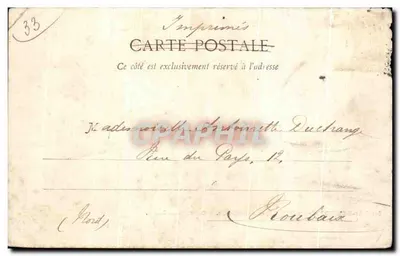 33
Imprimés
CARTE POSTALE
Ce côté est exclusivement réservé à l'adresse
Mademoiselle Antoinette Duchange
Rue du Pays, 12,
Roubaix
(Nord)
CARTAPHIL